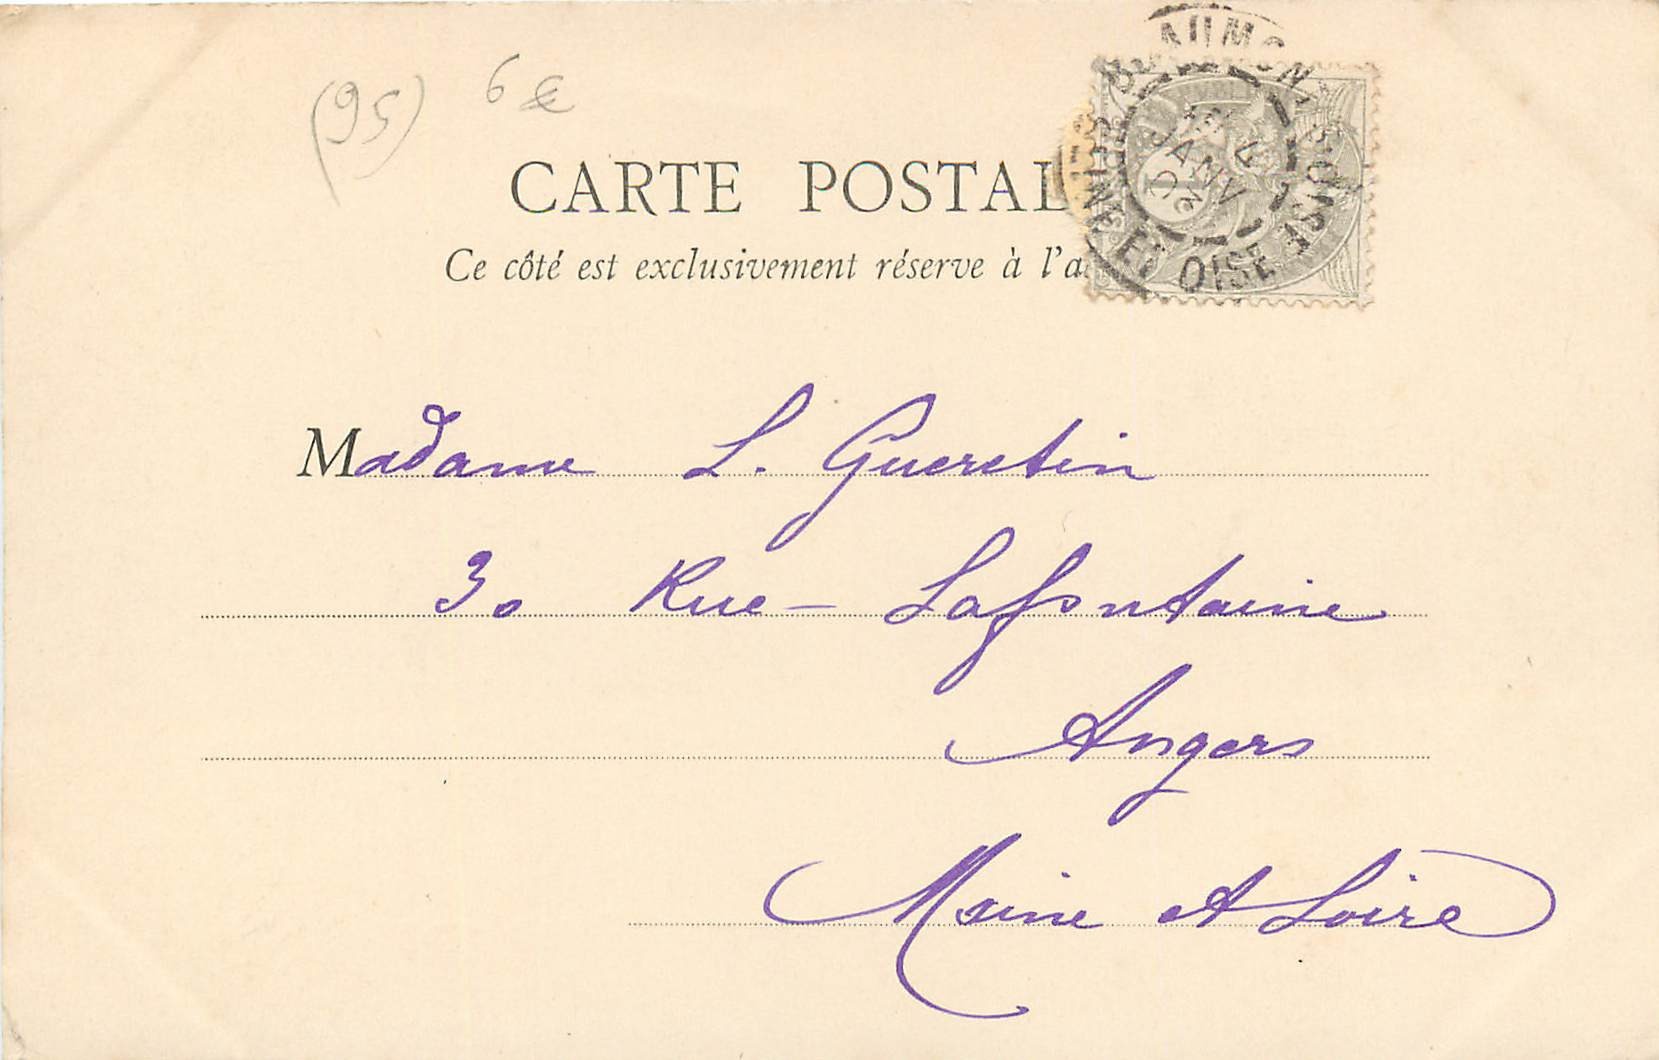 (95) 6 €
CARTE POSTAL
Ce côté est exclusivement réservé à l'a
Madame L. Gueretin
30 Rue - Lafontaine
Angers
Maine et Loire
SEINE ET OISE
JANV
02